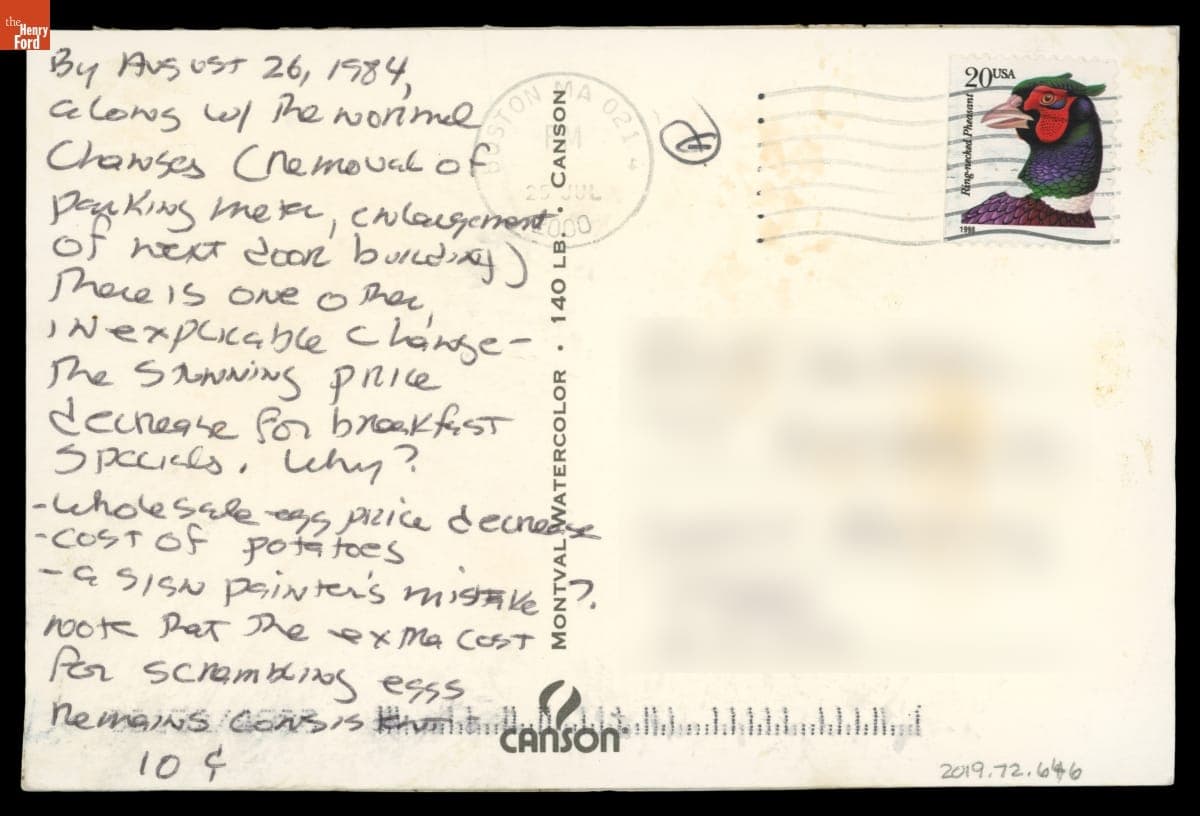 the
Henry
Ford
By August 26, 1984,
along w/ the normal
changes (removal of
parking meter, enlargement
of next door building)
there is one other,
inexplicable change-
the stunning price
decrease for breakfast
specials. Why?
-wholesale egg price decrease
-cost of potatoes
-a sign painter's mistake?
note that the extra cost
for scrambling eggs
remains consistent
10 ¢
BOSTON MA 021 4
PM
25 JUL
2000
20USA
Ring-necked Pheasant
1998
MONTVAL WATERCOLOR · 140 LB. · CANSON
CANSON
2019.72.646